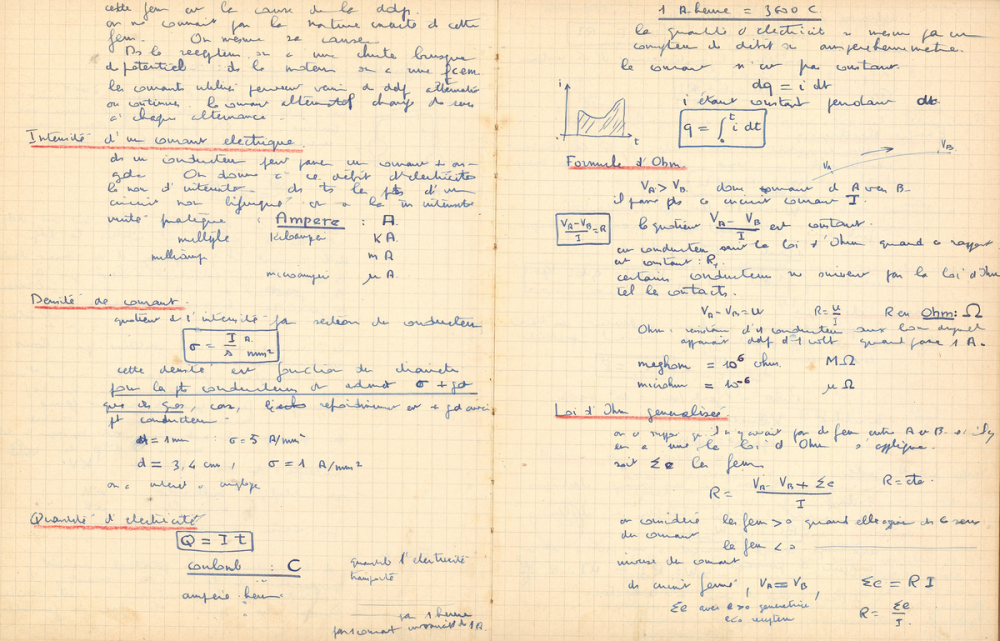 cette fem est la cause de la ddp.
on ne connait pas la nature exacte d cette
fem. On mesure sa cause
Ds le recepteur on a une chute brusque
de potentiel. ds le moteur on a une fcem
les courants utilisés peuvent venir de ddp alternative
ou continue. le courant alternatif change de sens
à chaque alternance.
Intensité d'un courant electrique.
ds un conducteur peut passer un courant + ou -
gd. On donne à ce débit d'électricité
le nom d'intensité. ds ts les pts d'un
circuit non bifurqué on a la m intensité
unité pratique : Ampere : A.
multiple kiloampere KA.
milliamp mA
microampère μA.
Densité de courant.
quotient de l'intensité par section du conducteur
σ = I/s A./mm²
cette densité est fonction du diametre
pour les pts conducteurs on admet σ + gd
que les gros, car, refroidissement est + gd avec
pt conducteur.
d = 1mm : σ = 5 A/mm²
d = 3,4 cm, σ = 1 A/mm²
on a interet
Quantité d'electricité
Q = I t
coulomb : C
quantité d'electricité
transportée
ampere-heure
par 1 heure
par 1 courant de 1A.
1 A.heure = 3600 C
la quantité d'électricité se mesure par un
compteur de débit ou ampereheuremetre.
le courant n'est pas constant.
dq = i dt
i étant constant pendant dt.
i
t
q = ∫₀ᵗ i dt
Formule d'Ohm.
VA
VB
VA > VB. donc courant d A vers B.
il passe ds ce circuit courant I.
VA-VB/I = R
le quotient VA - VB/I est constant.
un conducteur suit la loi d'Ohm quand ce rapport
est constant : R,
certains conducteurs ne suivent pas la loi d'Ohm
tel les contacts.
VA - VB = u R = u/I R en Ohm : Ω
Ohm : résistance d'1 conducteur aux bornes duquel
apparait ddp d'1 volt quand passe 1 A.
megohm = 10⁶ ohm. MΩ
microhm = 10⁻⁶ μΩ
Loi d'Ohm generalisée
on a supposé qu'il n'y avait pas de fem entre A et B. s'il y
en a une la loi d'Ohm s'applique.
soit Σe les fem
R = VA - VB + Σe/I R = cte.
on considère les fem > 0 quand elle agissent ds le sens
du courant
les fem < 0
inverse du courant
ds circuit fermé, VA = VB, Σe = R I
Σe avec e > 0 generatrice
e < 0 recepteur
R = Σe/I.